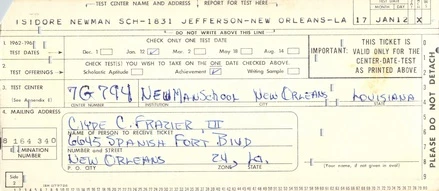 TEST CENTER NAME AND ADDRESS REPORT FOR TEST HERE
ISIDORE NEWMAN SCH-1831 JEFFERSON-NEW ORLEANS-LA 17 JAN12 X
DO NOT WRITE ABOVE THIS LINE
1. 1962-196 CHECK ONLY ONE TEST DATE
TEST DATES Dec. 1 Jan. 12 Mar. 2 May 18 Aug. 14
IMPORTANT: THIS TICKET IS VALID ONLY FOR THE CENTER-DATE-TEST AS PRINTED ABOVE
2. CHECK TEST(S) YOU WISH TO TAKE ON THE ONE DATE CHECKED ABOVE.
TEST OFFERINGS Scholastic Aptitude Achievement Writing Sample
3. TEST CENTER 7G 794 NEWMAN SCHOOL NEW ORLEANS LOUISIANA
CENTER NUMBER INSTITUTION CITY STATE
4. MAILING ADDRESS
CLYDE C. FRAZIER III
NAME OF PERSON TO RECEIVE TICKET
8 164 340 6645 SPANISH FORT BLVD
NUMBER and STREET
NEW ORLEANS 24, La.
P. O. CITY ZONE STATE
(Your name, if not given at left)
Side 2
PLEASE DO NOT DETACH